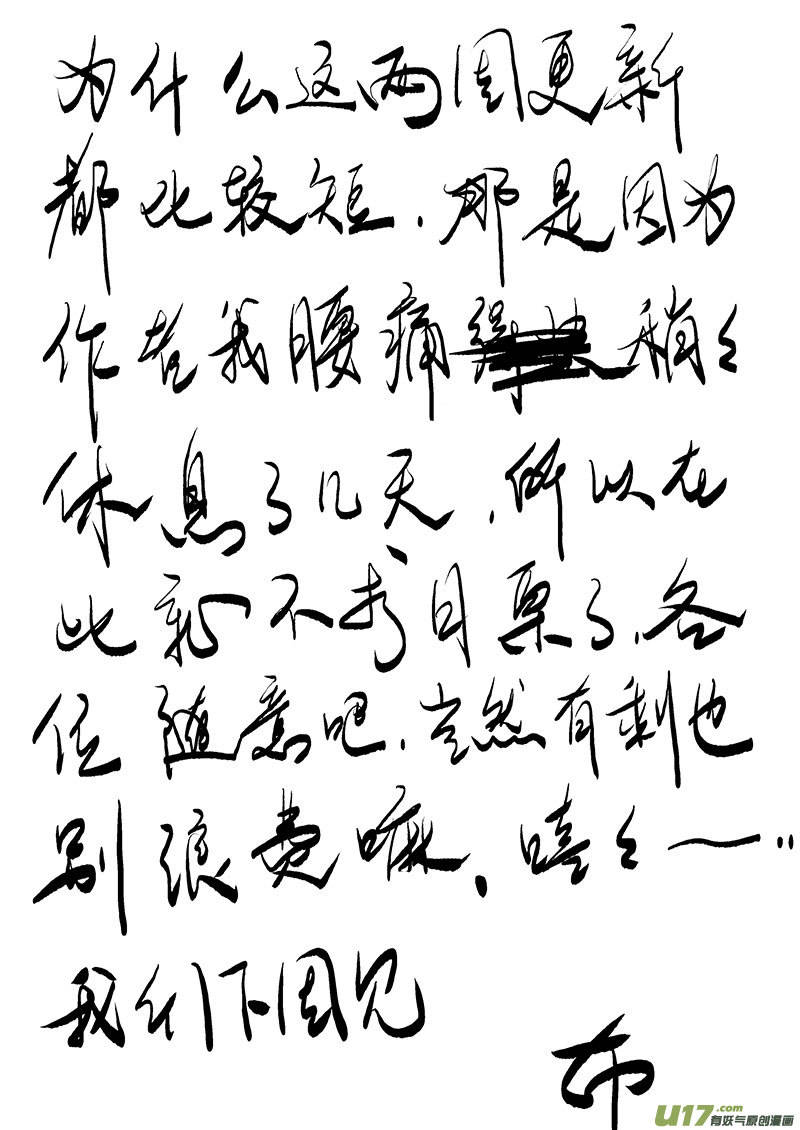 为什么这两周更新
都比较短.那是因为
作者我腰痛稍々
休息了几天,所以在
此就不求月票了,各
位随意吧.当然有剩也
别浪费嘛,嘻々~..
我们下周见
布
U17.com
有妖气原创漫画